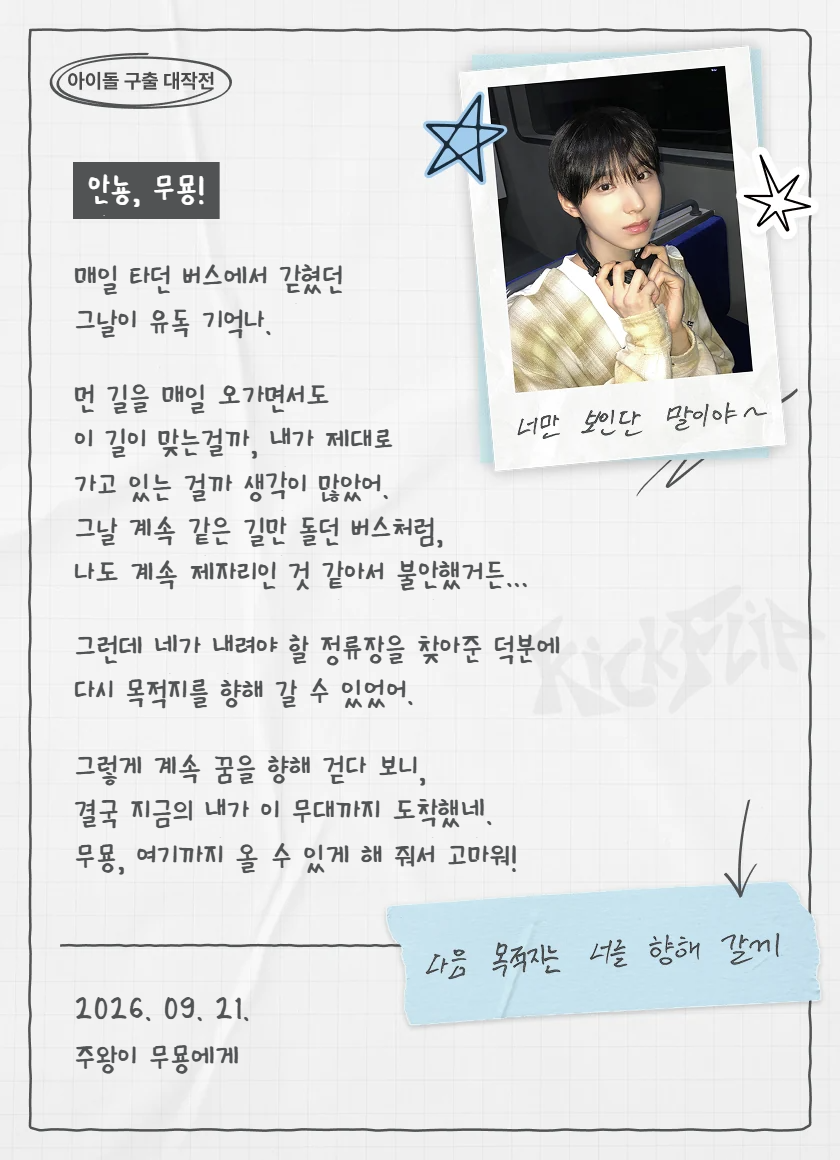 아이돌 구출 대작전
안뇽, 무묭!
너만 보인단 말이야~
매일 타던 버스에서 갇혔던
그날이 유독 기억나.
먼 길을 매일 오가면서도
이 길이 맞는걸까, 내가 제대로
가고 있는 걸까 생각이 많았어.
그날 계속 같은 길만 돌던 버스처럼,
나도 계속 제자리인 것 같아서 불안했거든...
그런데 네가 내려야 할 정류장을 찾아준 덕분에
다시 목적지를 향해 갈 수 있었어.
KickFlip
그렇게 계속 꿈을 향해 걷다 보니,
결국 지금의 내가 이 무대까지 도착했네.
무묭, 여기까지 올 수 있게 해 줘서 고마워!
다음 목적지는 너를 향해 갈게
2026. 09. 21.
주왕이 무묭에게